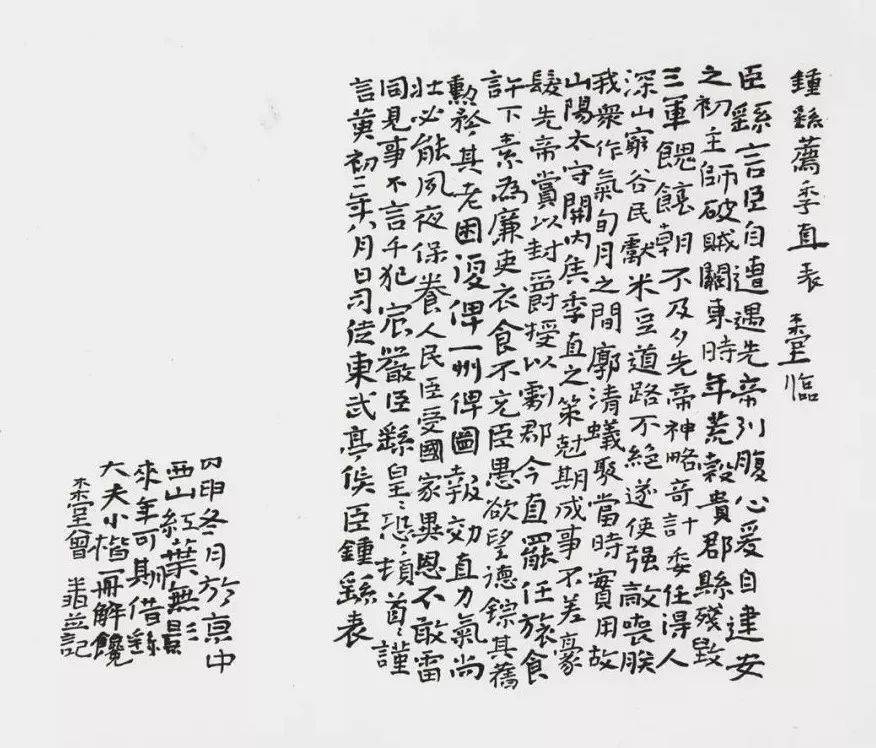 鍾繇薦季直表 柔堂臨
臣繇言臣自遭遇先帝列腹心爰自建安
之初主師破賊關東時年荒穀貴郡縣殘毀
三軍餽饟朝不及夕先帝神略奇計委任得人
深山窮谷民獻米豆道路不絕遂使強敵喪膽
我衆作氣旬月之間廓清蟻聚當時實用故
山陽太守關內侯季直之策尅期成事不差豪
髮先帝賞以封爵授以劇郡今直罷任旅食
許下素為廉吏衣食不充臣愚欲望德錄其舊
勲矜其老困復俾一州俾圖報効直力氣尚
壯必能夙夜保養人民臣受國家異恩不敢雷
同見事不言干犯宸嚴臣繇皇〻恐〻頓首〻謹
言黃初二年八月日司徒東武亭侯臣鍾繇表
丙申冬月於京中
西山紅葉無影
來年可期借繇
大夫小楷一冊解饞
柔堂曾並記